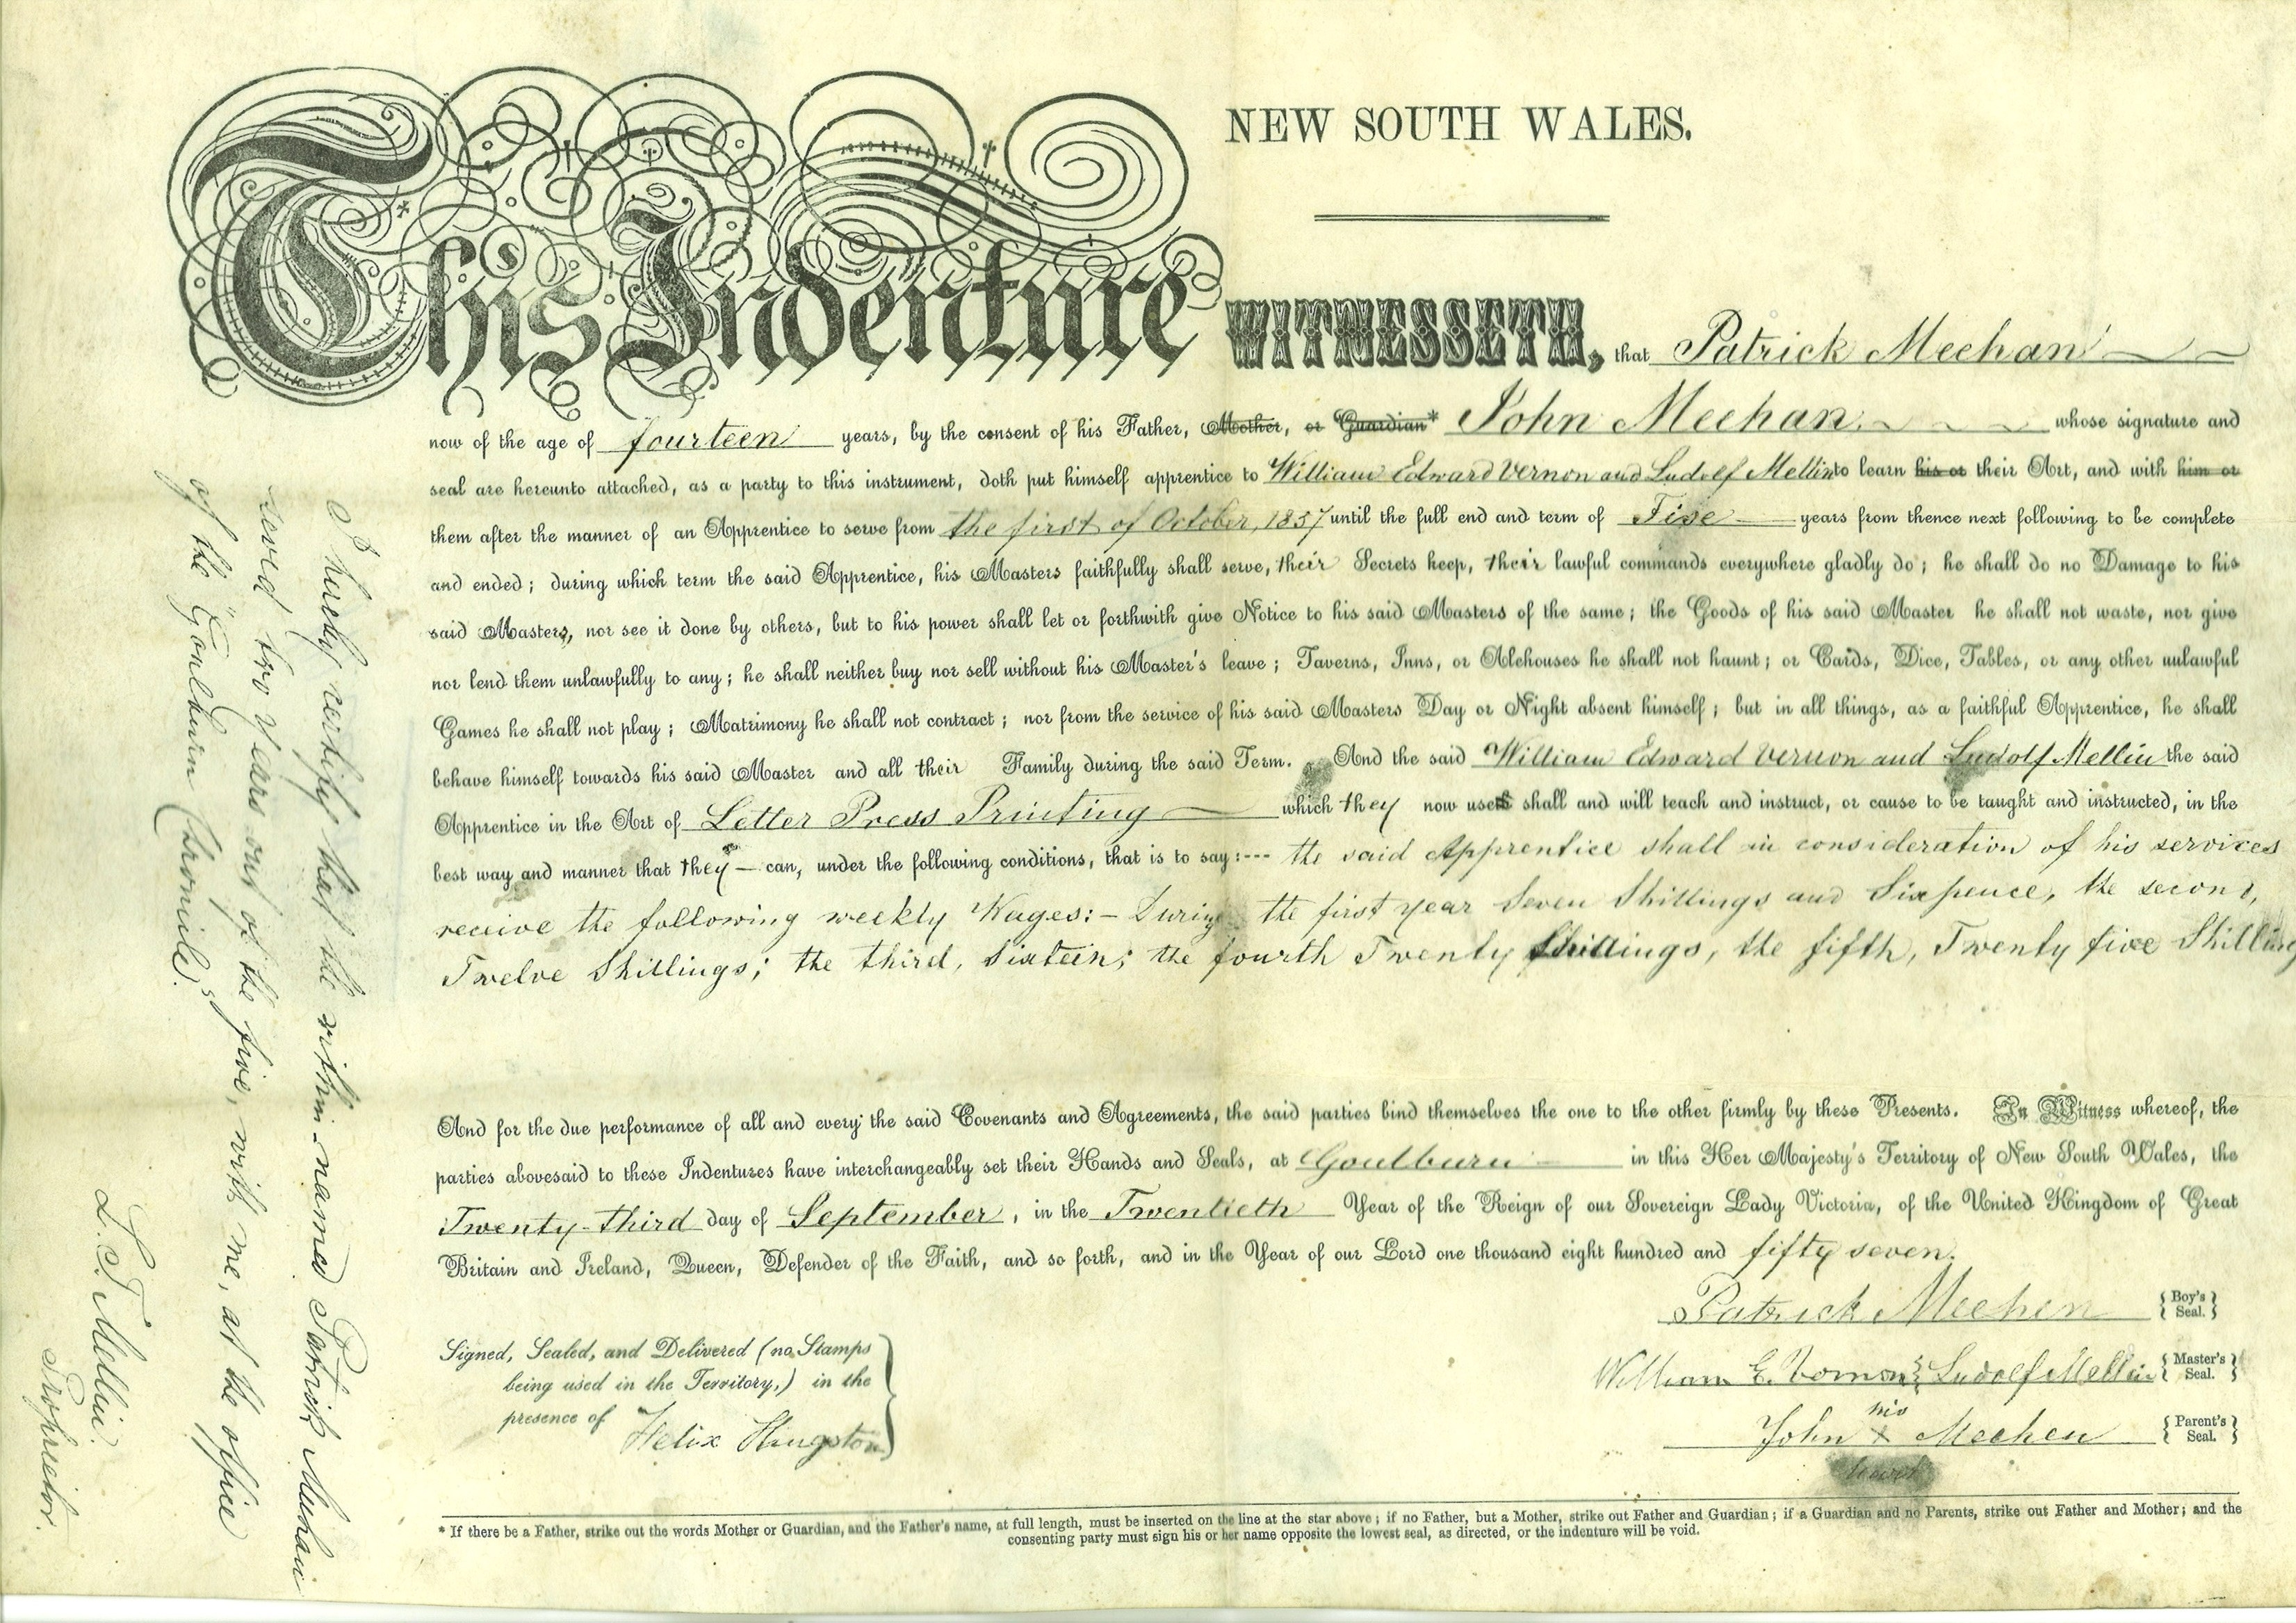 NEW SOUTH WALES.
This Indenture WITNESSETH, that Patrick Meehan
now of the age of fourteen years, by the consent of his Father, Mother, or Guardian* John Meehan whose signature and
seal are hereunto attached, as a party to this instrument, doth put himself apprentice to William Edward Vernon and Ludolf Mellin to learn his or their Art, and with him or
them after the manner of an Apprentice to serve from the first of October, 1857 until the full end and term of Five years from thence next following to be complete
and ended; during which term the said Apprentice, his Masters faithfully shall serve, their Secrets keep, their lawful commands everywhere gladly do; he shall do no Damage to his
said Masters, nor see it done by others, but to his power shall let or forthwith give Notice to his said Masters of the same; the Goods of his said Master he shall not waste, nor give
nor lend them unlawfully to any; he shall neither buy nor sell without his Master's leave; Taverns, Inns, or Alehouses he shall not haunt; or Cards, Dice, Tables, or any other unlawful
Games he shall not play; Matrimony he shall not contract; nor from the service of his said Masters Day or Night absent himself; but in all things, as a faithful Apprentice, he shall
behave himself towards his said Master and all their Family during the said Term. And the said William Edward Vernon and Ludolf Mellin the said
Apprentice in the Art of Letter Press Printing which they now uses shall and will teach and instruct, or cause to be taught and instructed, in the
best way and manner that they — can, under the following conditions, that is to say:--- the said Apprentice shall in consideration of his services
receive the following weekly Wages:- During the first year Seven Shillings and Sixpence, the second,
Twelve Shillings; the third, Sixteen; the fourth Twenty Shillings, the fifth, Twenty five Shillings
And for the due performance of all and every the said Covenants and Agreements, the said parties bind themselves the one to the other firmly by these Presents. In Witness whereof, the
parties abovesaid to these Indentures have interchangeably set their Hands and Seals, at Goulburn in this Her Majesty's Territory of New South Wales, the
Twenty-third day of September, in the Twentieth Year of the Reign of our Sovereign Lady Victoria, of the United Kingdom of Great
Britain and Ireland, Queen, Defender of the Faith, and so forth, and in the Year of our Lord one thousand eight hundred and fifty seven.
Patrick Meehen { Boy's Seal. }
William E. Vernon & Ludolf Mellin { Master's Seal. }
his
John X Meehen { Parent's Seal. }
Signed, Sealed, and Delivered (no Stamps
being used in the Territory,) in the
presence of Felix Kingston
* If there be a Father, strike out the words Mother or Guardian, and the Father's name, at full length, must be inserted on the line at the star above; if no Father, but a Mother, strike out Father and Guardian; if a Guardian and no Parents, strike out Father and Mother; and the
consenting party must sign his or her name opposite the lowest seal, as directed, or the indenture will be void.
I hereby certify that the within-named Patrick Meehan
served two years out of the five, with me, at the office
of the "Goulburn Chronicle."
L. T. Mellin.
Proprietor.